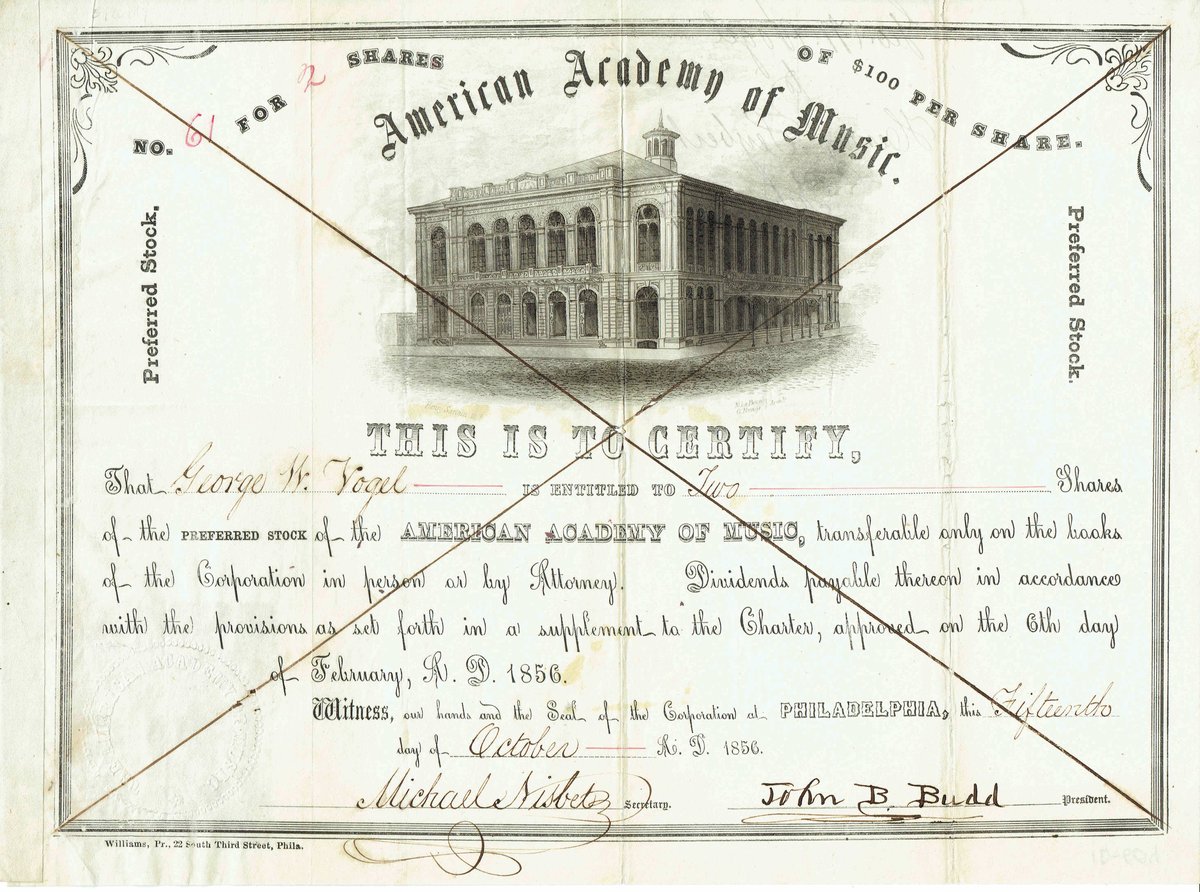 NO. 61 FOR 2 SHARES OF $100 PER SHARE.
American Academy of Music.
Preferred Stock.
Preferred Stock.
THIS IS TO CERTIFY,
That George W. Vogel IS ENTITLED TO Two Shares
of the PREFERRED STOCK of the AMERICAN ACADEMY OF MUSIC, transferable only on the books
of the Corporation in person or by Attorney. Dividends payable thereon in accordance
with the provisions as set forth in a supplement to the Charter, approved on the 6th day
of February, A. D. 1856.
Witness, our hands and the Seal of the Corporation at PHILADELPHIA, this Fifteenth
day of October A. D. 1856.
Michael Nisbet Secretary. John B. Budd President.
Williams, Pr., 22 South Third Street, Phila.